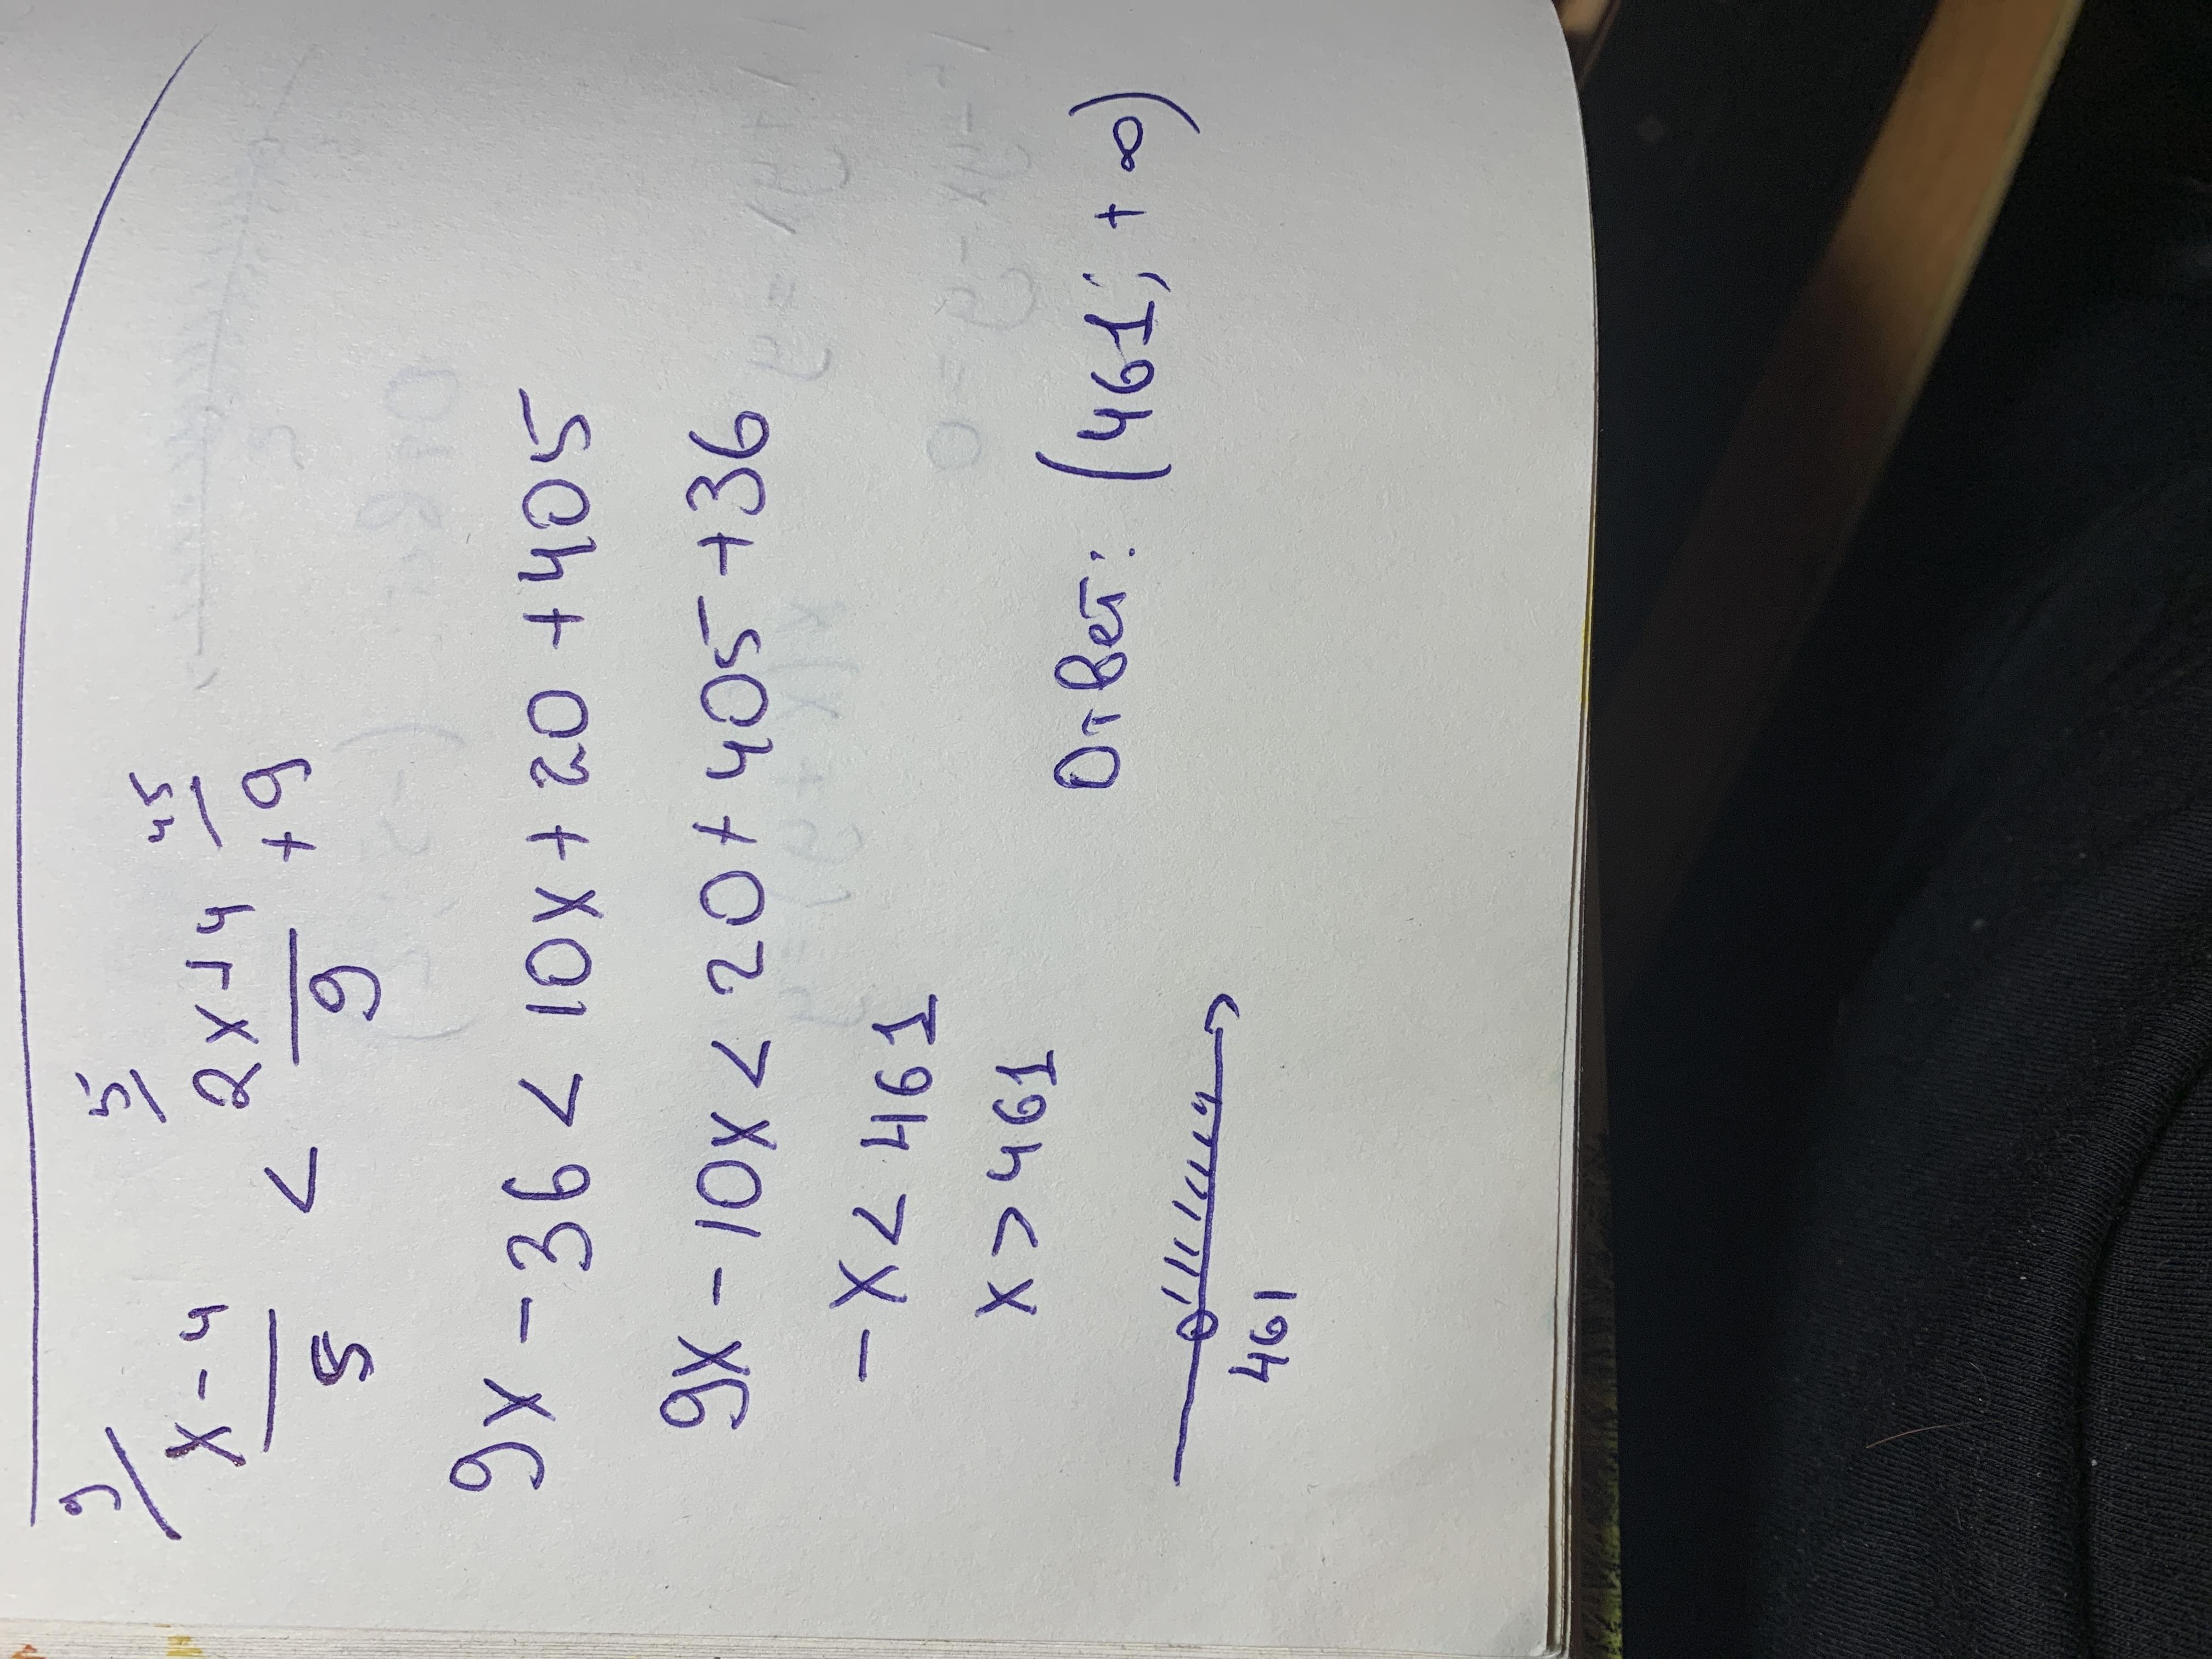 9/ 5/ 45/
x-4/5 < 2x+4/9 + 9
9x - 36 < 10x + 20 + 405
9x - 10x < 20 + 405 + 36
-x < 461
x > 461
461
Ответ: (461; +∞)